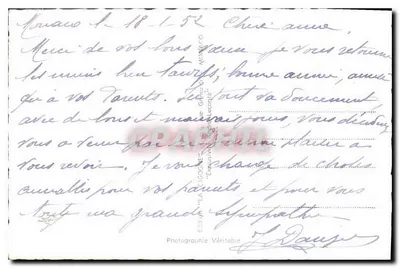 Monaco le 18-1-52 Chère anne.
Merci de vos bons vœux je vous retourne
les miens bien tardifs, bonne année, ainsi
qu'à vos Parents. Ici tout va doucement
avec de bons et mauvais jours, vous
vous a venir
vous revoir. Je vous charge de choses
aimables pour vos parents et pour vous
toute ma grande sympathie
Photographie Véritable